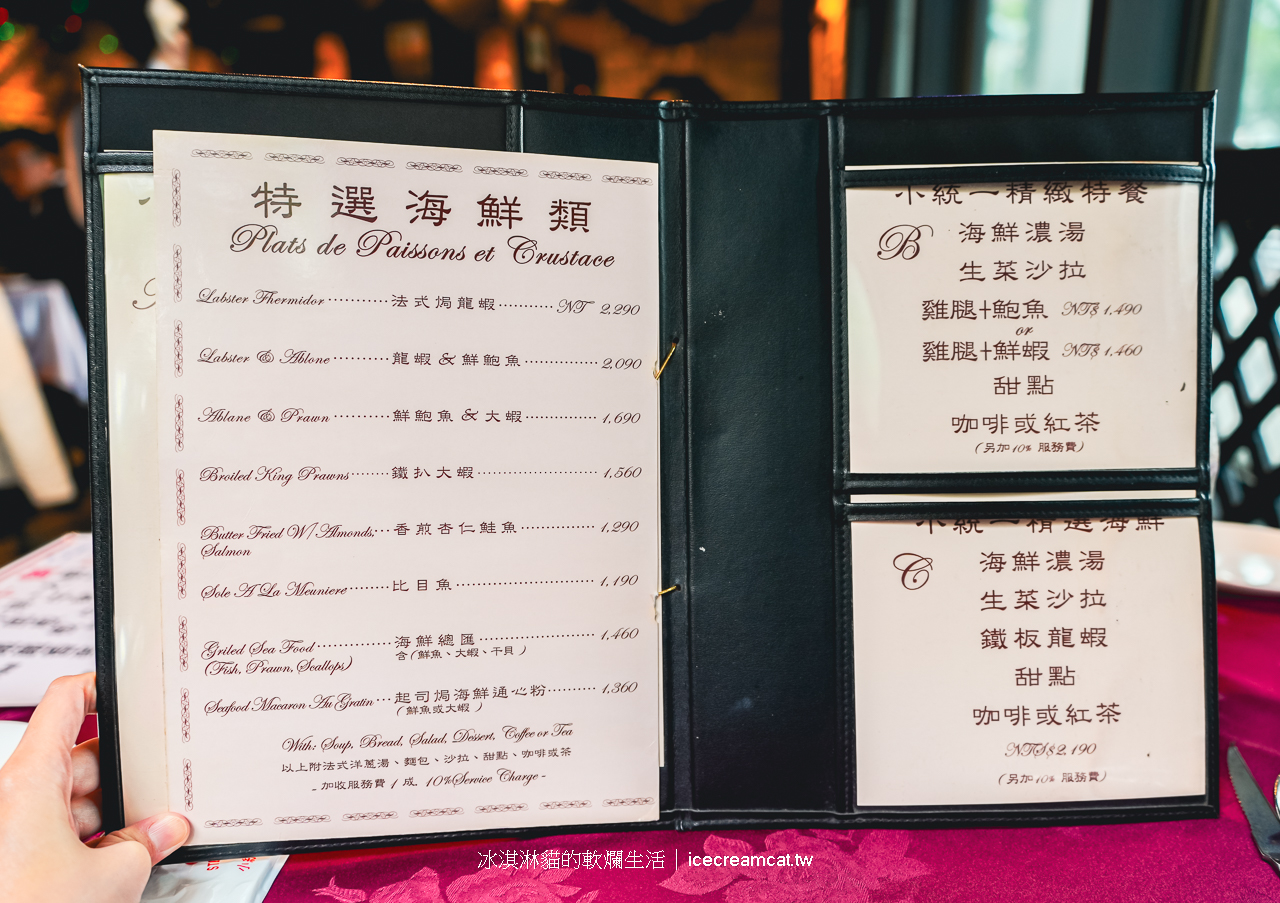 特選海鮮類
Plats de Paissons et Crustace
Labster Thermidor ··········法式焗龍蝦··········NT 2,290
Labster & Ablone ··········龍蝦 & 鮮鮑魚··········2,090
Ablane & Prawn ··········鮮鮑魚 & 大蝦··········1,690
Broiled King Prawns·······鐵扒大蝦··········1,560
Butter Fried W/ Almonds,··香煎杏仁鮭魚··········1,290
Salmon
Sole A La Meuniere········比目魚··········1,190
Griled Sea Food··········海鮮總匯··········1,460
(Fish, Prawn, Scallops) 含(鮮魚、大蝦、干貝)
Seafood Macaron Au Gratin···起司焗海鮮通心粉··········1,360
(鮮魚或大蝦)
With: Soup, Bread, Salad, Dessert, Coffee or Tea
以上附法式洋蔥湯、麵包、沙拉、甜點、咖啡或茶
- 加收服務費 1 成, 10% Service Charge -
小統一精緻特餐
B
海鮮濃湯
生菜沙拉
雞腿+鮑魚 NT$ 1,490
or
雞腿+鮮蝦 NT$ 1,460
甜點
咖啡或紅茶
(另加10% 服務費)
小統一精選海鮮
C
海鮮濃湯
生菜沙拉
鐵板龍蝦
甜點
咖啡或紅茶
NT$$2,190
(另加10% 服務費)
冰淇淋貓的軟爛生活｜icecreamcat.tw